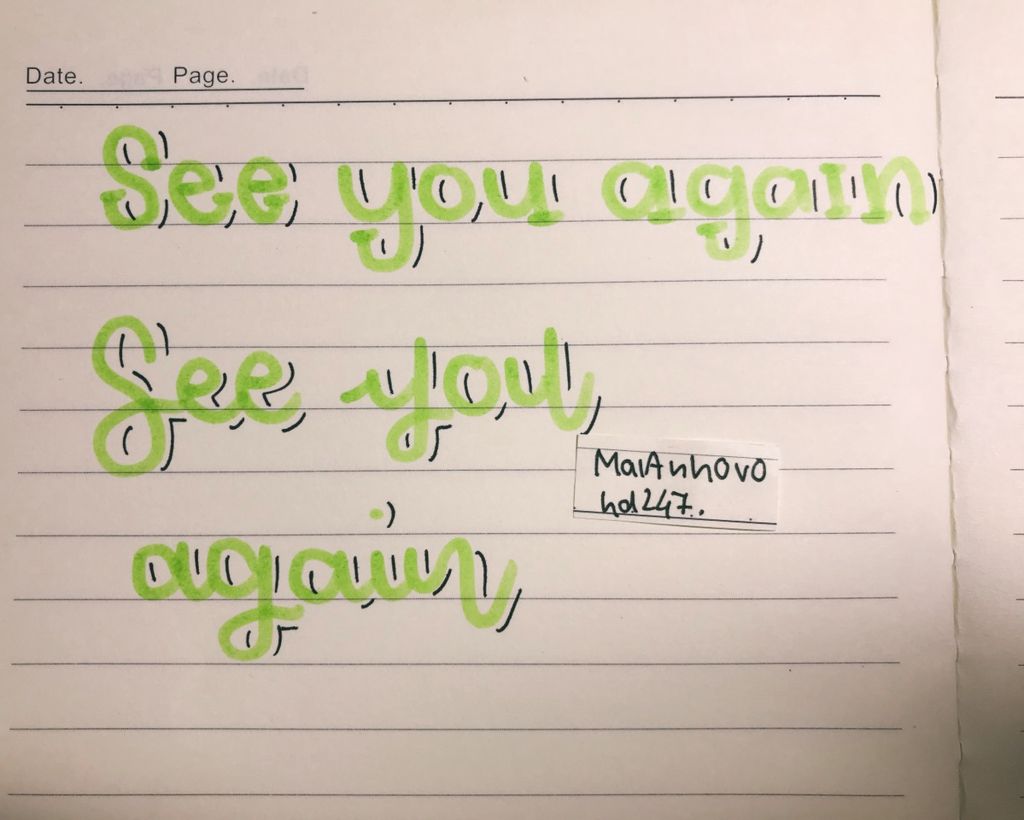 Date. Page.
See you again
See you
MaiAnhOvO
hd247.
again